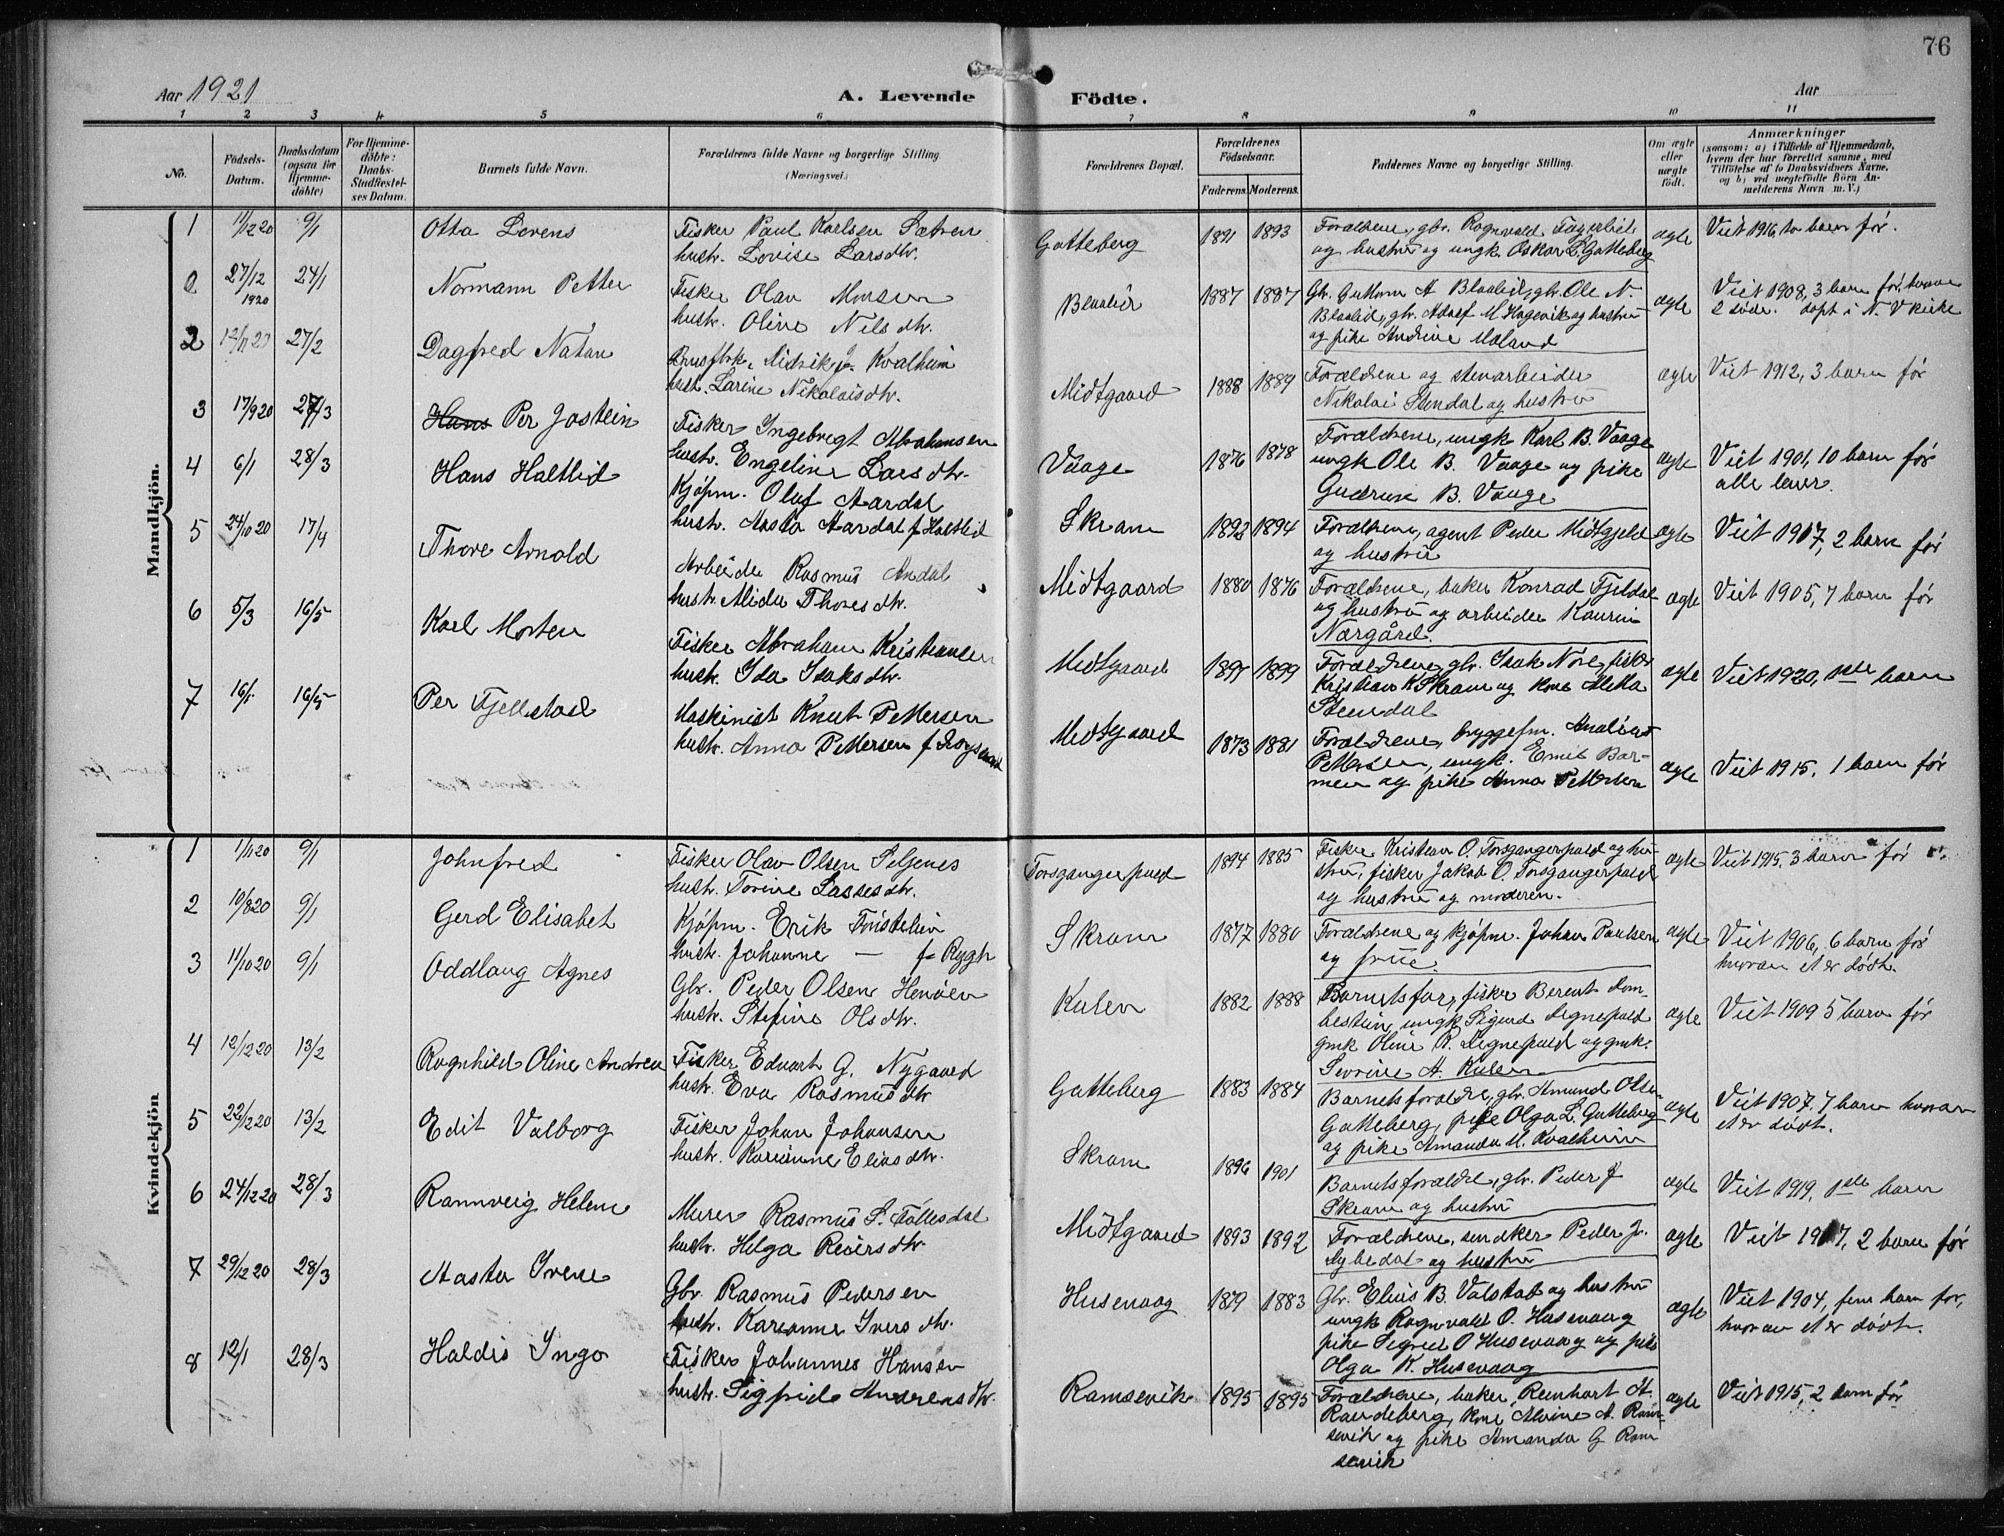 76
Aar 1921
A. Levende Födte.
Aar
1 2 3 4 5 6 7 8 9 10 11
No.
Födsels-Datum.
Daabsdatum (ogsaa for Hjemme-döbte)
For Hjemme-döbte: Daabs-Stadfæstel-ses Datum.
Barnets fulde Navn.
Forældrenes fulde Navne og borgerlige Stilling (Næringsvei.)
Forældrenes Bopæl.
Forældrenes Födselsaar.
Faderens. Moderens.
Faddernes Navne og borgerlige Stilling.
Om ægte eller uægte födt.
Anmærkninger
(saasom: a) i Tilfælde af Hjemmedaab, hvem der har forrettet samme, med Tilföielse af to Daabsvidners Navne, og b) ved uægtefödte Börn An-melderens Navn m. V.)
Mandkjön.
1 11/12 20 9/1 Otto Lorens
Fisker Paul Karlsen Sætren
hustr. Lovise Larsdtr.
Gotteberg 1891 1893
Forældrene, gbr. Rognvald Fagerlid
og hustru og ungk. Oskar L. Gotteberg
ægte
Viet 1916, to barn før.
2 27/12 1920 24/1 Normann Petter
Fisker Olav Monsen
hustr. Oline Nilsdtr.
Blaalid 1887 1887
Gbr. Guttorm A Blaalid, gbr. Ole N.
Blaalid, gbr. Adolf M. Hagevik og hustru
og pike Andrine Maland
ægte
Viet 1908, 3 barn før, hvorav
2 døde. døpt i N. V kirke
2 12/11 20 27/2 Dagfred Natan
hustr. Larine Nikolaisdtr.
Midtgaard 1888 1889
Forældrene og stenarbeider
Nikolai Stendal og hustru
ægte
Viet 1912, 3 barn før
3 17/9 20 27/3 Hans Per Jostein
Fisker Ingebrigt Abrahamsen
hustr. Engeline Larsdtr.
Vaage 1876 1878
Forældrene, ungk Karl B. Vaage
ungk Ole B. Vaage og pike
Gudrun B. Vaage
ægte
Viet 1901, 10 barn før
alle lever.
4 6/1 28/3 Hans Haltlid
Kjøpm. Oluf Aardal
hustr. Aasta Aardal f Haltlid
Skram 1892 1894
Forældrene, agent Peder Midtgjeld
og hustru
ægte
Viet 1917, 2 barn før
5 24/10 20 17/4 Thore Arnold
Arbeider Rasmus Andal
hustr. Alida Thoresdtr.
Midtgaard 1880 1876
Forældrene, baker Konrad Fjeldal
og hustru og arbeider Kaurin
Nærgård.
ægte
Viet 1905, 7 barn før
6 5/3 16/5 Karl Morten
Fisker Abraham Kristiansen
hustr. Ida Isaksdtr.
Midtgaard 1899
Forældrene, gbr. Isak Nore, fisker
Kristian K Skram og kone Metta
Stendal
ægte
Viet 1920, 1ste barn
7 16/1 16/5 Per Fjellstad
Maskinist Knut Pettersen
hustr. Anna Pettersen f
Midtgaard 1873 1881
Forældrene, bryggefm. Analius
Pettersen, ungk. Emil Bar-
men og pike Anna Pettersen
ægte
Viet 1915, 1 barn før
Kvindekjön
1 1/11 20 9/1 Johnfred
Fisker Olav Olsen Seljenes
hustr. Torine Lassesdtr.
Torsgangerpuld 1894 1885
Fisker Kristian O. Torsgangerpuld og hu-
stru, fisker Jakob O. Torsgangerpuld
og hustru og moderen.
ægte
Viet 1915, 3 barn før
2 10/8 20 9/1 Gerd Elisabet
Kjøpm. Erik
hustr. Johanne — f. Rygh
Skram 1877 1880
Forældrene og kjøpm. Johan Paulsen
og frue.
ægte
Viet 1906, 6 barn før
hvorav et er dødt.
3 11/10 20 9/1 Oddlaug Agnes
Gbr. Peder Olsen Henøen
hustr. Stefine Olsdtr.
Kulen 1882 1888
Barnets far, fisker Berent Dom-
bestein, ungk Sigurd Legnepuld
gmk Oline R. Legnepuld og gmk.
Sevrine A. Kulen
ægte
Viet 1909 5 barn før
4 12/12 20 13/2 Rognhild Oline Andrea
Fisker Edvart G. Nygaard
hustr. Eva Rasmusdtr
Gotteberg 1883 1884
Barnets forældre, gbr. Amund Olsen
Gotteberg, pike Olga L. Gotteberg
og pike Amanda M. Kvalheim
ægte
Viet 1907. 7 barn hvorav
et er dødt.
5 22/12 20 13/2 Edit Valborg
Fisker Johan Johansen
hustr. Karianne Eliasdtr.
Skram 1896 1901
Barnets forældre, gbr. Peder J
Skram og hustru
ægte
Viet 1919, 1ste barn
6 24/12 20 28/3 Rannveig Helene
Murer Rasmus S. Follesdal
hustr. Helga Reiersdtr.
Midtgaard 1893 1892
Forældrene, snedker Peder Jr.
og hustru
ægte
Viet 1917, 2 barn før
7 29/12 20 28/3 Aasta Irene
Gbr. Rasmus Pedersen
hustr. Karianne Iversdtr.
Husevaag 1879 1883
Gbr. Elias B. Valstad og hustru
ungk Rognvald O. Husevaag
pike Sigrid O Husevaag og pike
Olga K. Husevaag
ægte
Viet 1904, fem barn før,
hvorav et er dødt.
8 12/1 28/3 Haldis Inga
Fisker Johannes Hansen
hustr. Sigfrid Andreasdtr.
Ramsevik 1895 1895
Forældrene, baker Reinhart A.
Raudeberg, kone Alvine A. Ram-
sevik og pike Amanda G Ram
sevik
ægte
Viet 1915, 2 barn før